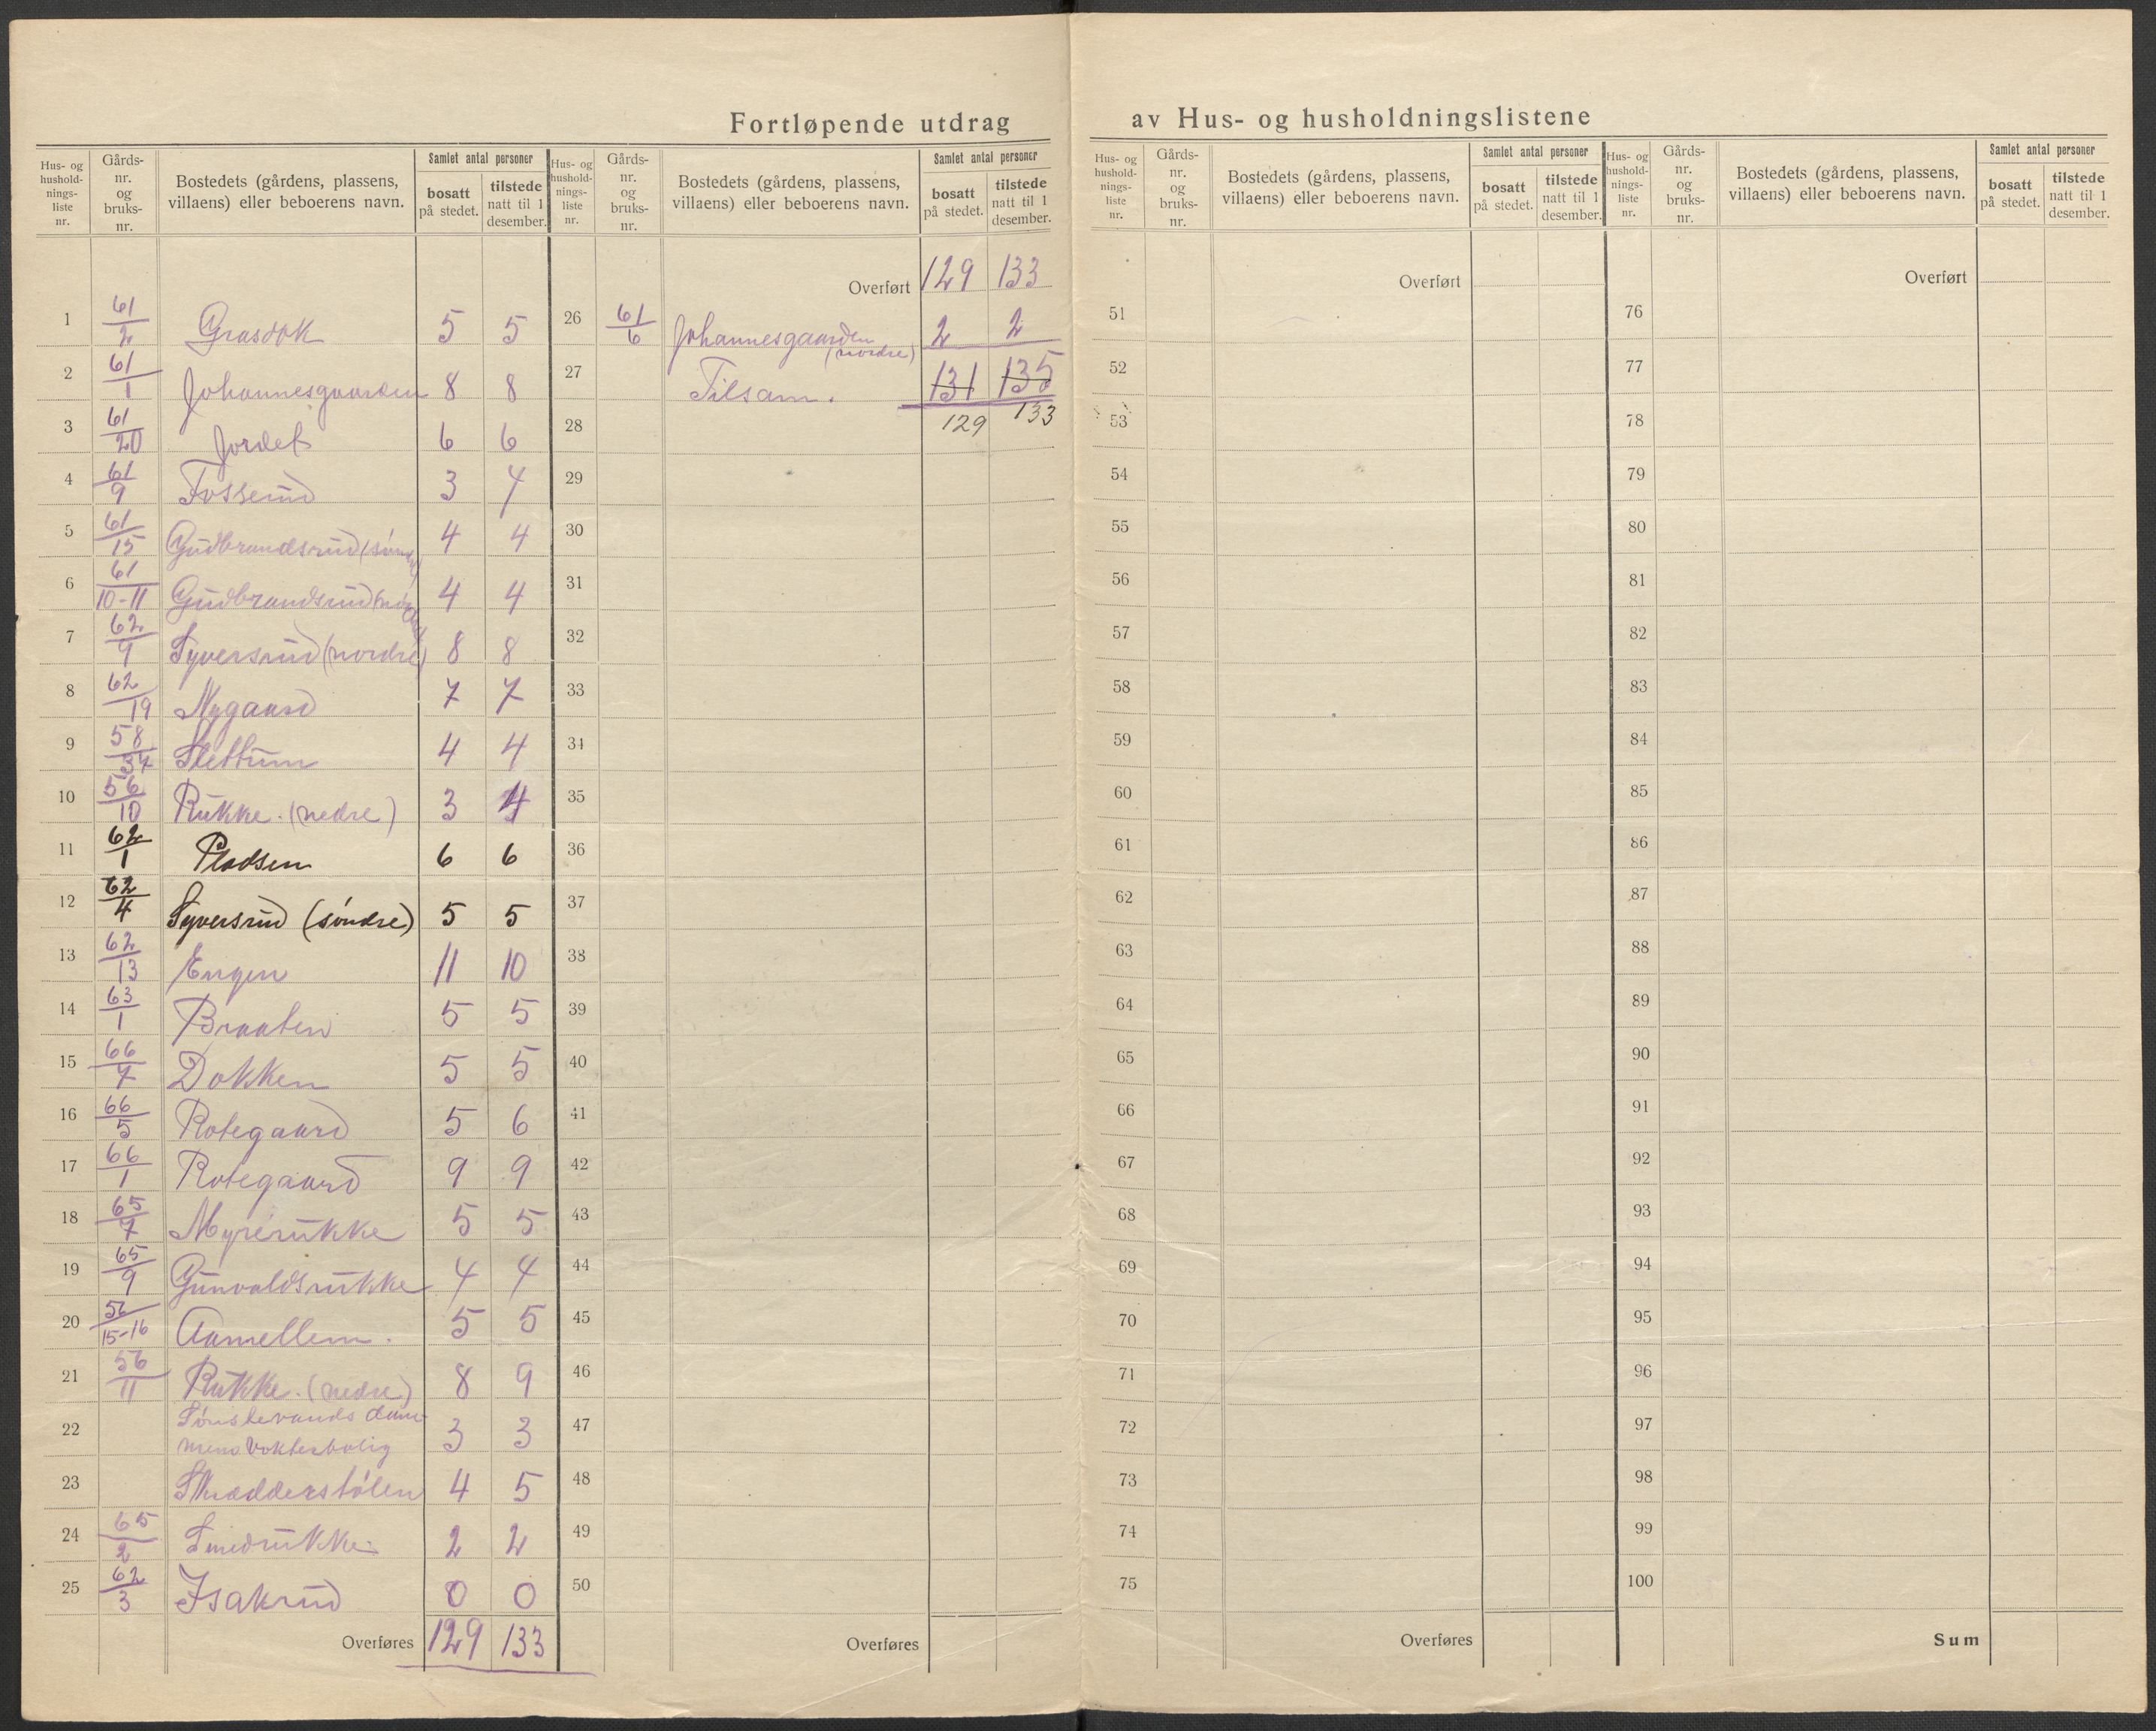 Fortløpende utdrag av Hus- og husholdningslistene
Hus- og hushold-nings-liste nr. Gårds-nr. og bruks-nr. Bostedets (gårdens, plassens, villaens) eller beboerens navn. Samlet antal personer bosatt på stedet. tilstede natt til 1 desember.
1 61/2 Grasdok 5 5
2 61/1 Johannesgaarden 8 8
3 61/20 Jordet 6 6
4 61/9 Fosserud 3 4
5 61/15 Gudbrandsrud (søndre) 4 4
6 61/10-11 Gudbrandsrud (nordre) 4 4
7 62/9 Syversrud (nordre) 8 8
8 62/19 Nygaard 7 7
9 58/34 Slettum 4 4
10 56/10 Rukke. (nedre) 3 4
11 62/1 Pladsen 6 6
12 62/4 Syversrud (søndre) 5 5
13 62/13 Engen 11 10
14 63/1 Braaten 5 5
15 66/7 Dokken 5 5
16 66/5 Rotegaard 5 6
17 66/1 Rotegaard 9 9
18 65/7 Myrerukke 5 5
19 65/9 Gunvaldsrukke 4 4
20 56/15-16 Aamellem. 5 5
21 56/11 Rukke. (nedre) 8 9
22 Sønstevands dam-
mens vokterbolig 3 3
23 Skrædderstølen 4 5
24 65/2 Smedrukke 2 2
25 62/3 Isakrud 0 0
Overføres 129 133
Hus- og hushold-nings-liste nr. Gårds-nr. og bruks-nr. Bostedets (gårdens, plassens, villaens) eller beboerens navn. Samlet antal personer bosatt på stedet. tilstede natt til 1 desember.
Overført 129 133
26 61/6 Johannesgaarden (nordre) 2 2
27 Tilsam. 131 135
28 129 133
29
30
31
32
33
34
35
36
37
38
39
40
41
42
43
44
45
46
47
48
49
50
Overføres
Hus- og hushold-nings-liste nr. Gårds-nr. og bruks-nr. Bostedets (gårdens, plassens, villaens) eller beboerens navn. Samlet antal personer bosatt på stedet. tilstede natt til 1 desember.
Overført
51
52
53
54
55
56
57
58
59
60
61
62
63
64
65
66
67
68
69
70
71
72
73
74
75
Overføres
Hus- og hushold-nings-liste nr. Gårds-nr. og bruks-nr. Bostedets (gårdens, plassens, villaens) eller beboerens navn. Samlet antal personer bosatt på stedet. tilstede natt til 1 desember.
Overført
76
77
78
79
80
81
82
83
84
85
86
87
88
89
90
91
92
93
94
95
96
97
98
99
100
Sum